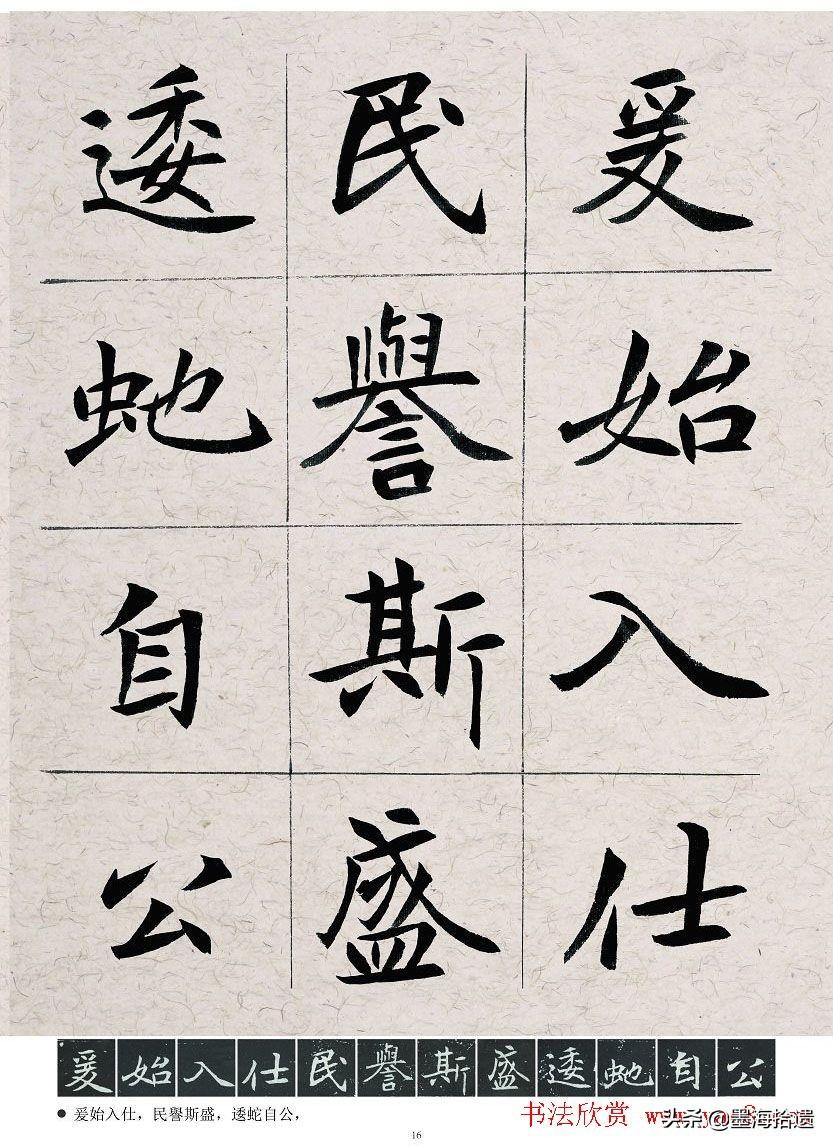 爰始入仕
民譽斯盛
逶虵自公
爰始入仕民譽斯盛逶虵自公
● 爰始入仕，民譽斯盛，逶蛇自公，
书法欣赏
头条@墨海拾遗
16